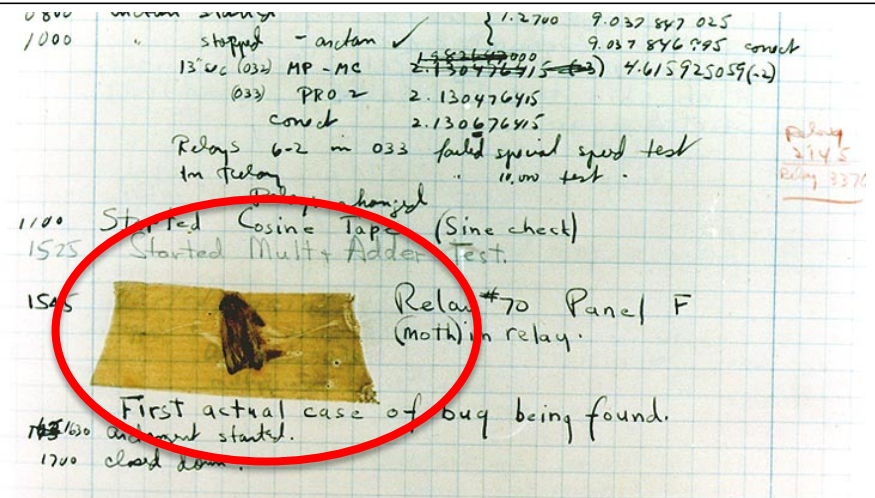 0800 antan started { 1.2700 9.037 847 025
1000 " stopped - antan ✓ 9.037 846 995 conect
13" sec (032) MP - MC 1.982647000 2.130476415 (-3) 4.615925059(-2)
(033) PRO 2 2.130476415
conect 2.130676415
Relays 6-2 in 033 failed special speed test
In Relay " 10.000 test .
Relay
2145
Relay 3370
Relays changed
1100 Started Cosine Tape (Sine check)
1525 Started Mult + Adder Test.
1545 Relay #70 Panel F
(moth) in relay.
First actual case of bug being found.
1630 antangent started.
1700 closed down.